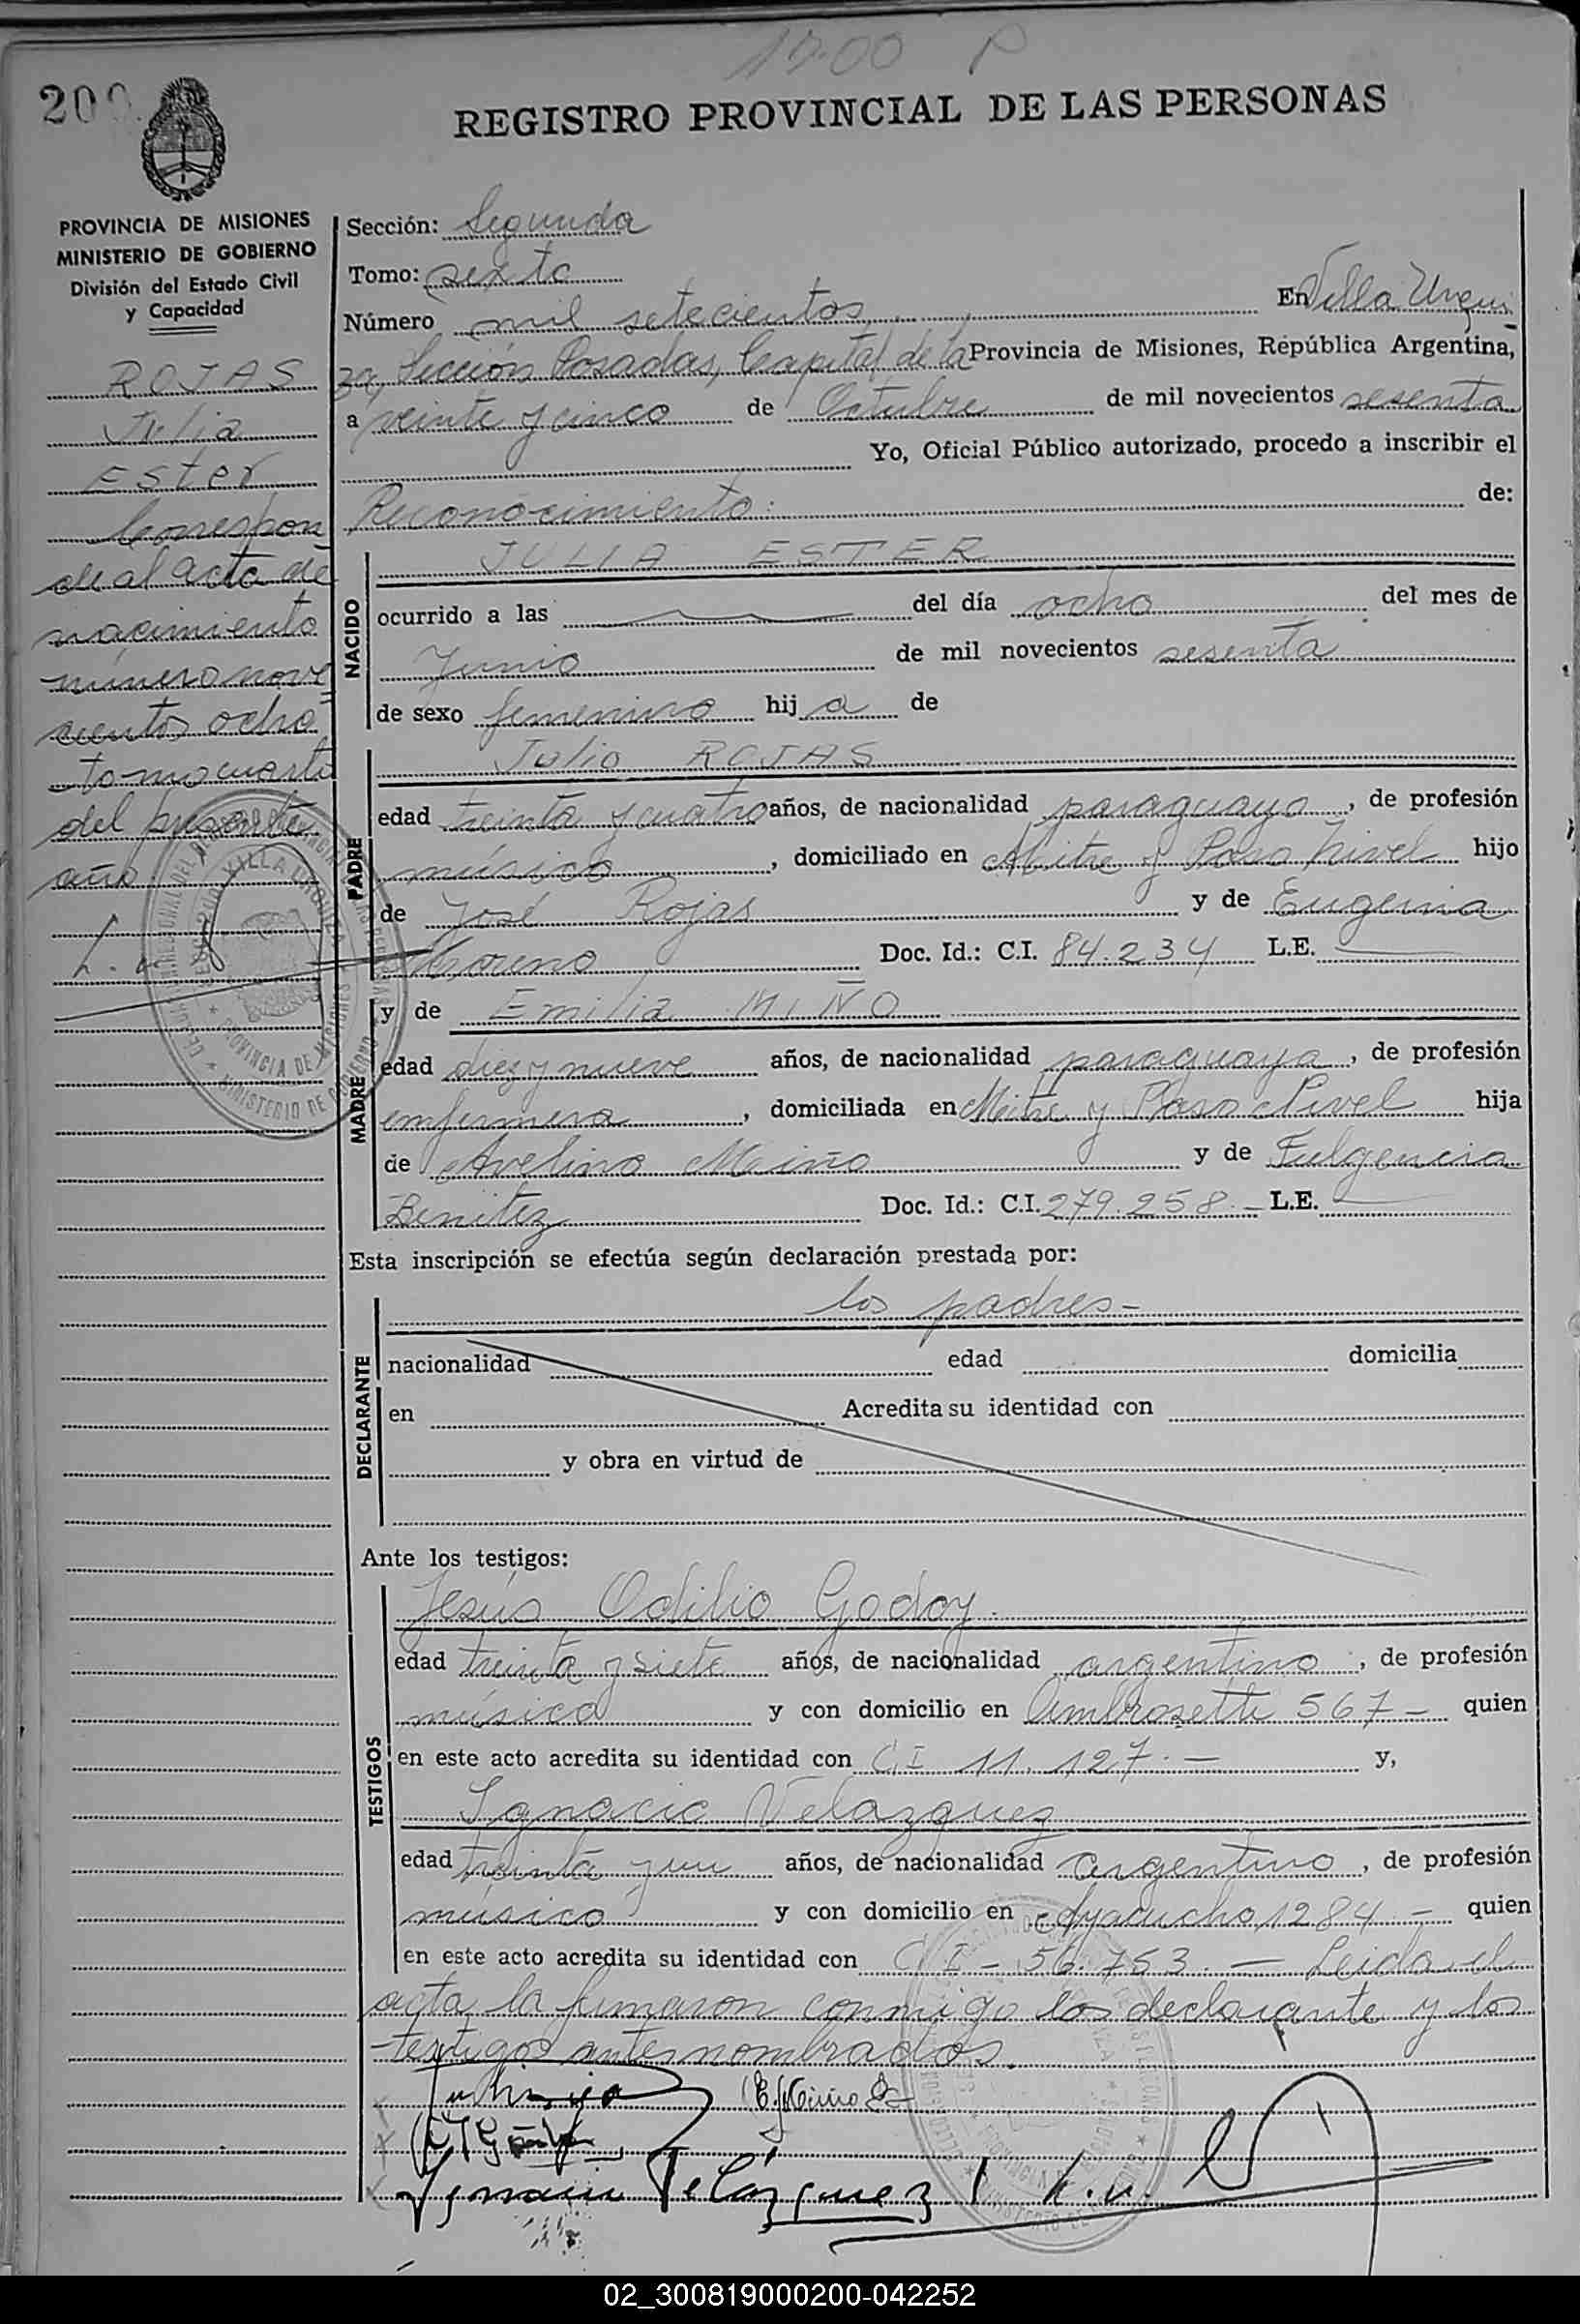 17.00 P
200
REGISTRO PROVINCIAL DE LAS PERSONAS
PROVINCIA DE MISIONES
MINISTERIO DE GOBIERNO
División del Estado Civil
y Capacidad
ROJAS
Julia
Ester
Correspon
de al acta de
nacimiento
número nove
cientos ocho
tomo cuarto
del presente
año
Sección: Segunda
Tomo: sexto
Número mil setecientos En Villa Urqui
za, Sección Posadas, Capital de la Provincia de Misiones, República Argentina,
a veinte y cinco de Octubre de mil novecientos sesenta
Yo, Oficial Público autorizado, procedo a inscribir el
Reconocimiento: de:
NACIDO
JULIA ESTER
ocurrido a las del día ocho del mes de
Junio de mil novecientos sesenta
de sexo femenino hij a de
PADRE
Julio ROJAS
edad treinta y cuatro años, de nacionalidad paraguayo, de profesión
músico, domiciliado en Mitre y Paso Nivel hijo
de José Rojas y de Eugenia
Moreno Doc. Id.: C.I. 84.234 L.E.
MADRE
y de Emilia MIÑO
edad diez y nueve años, de nacionalidad paraguaya, de profesión
enfermera, domiciliada en Mitre y Paso Nivel hija
de Avelino Miño y de Fulgencia
Benitez Doc. Id.: C.I. 279.258.- L.E.
Esta inscripción se efectúa según declaración prestada por:
DECLARANTE
los padres-
nacionalidad edad domicilia
en Acredita su identidad con
y obra en virtud de
Ante los testigos:
TESTIGOS
Jesús Odilio Godoy.
edad treinta y siete años, de nacionalidad argentino, de profesión
músico y con domicilio en Ambrosetti 567- quien
en este acto acredita su identidad con C.I 11.127.- y,
Ignacio Velazquez
edad treinta y un años, de nacionalidad argentino, de profesión
músico y con domicilio en Ayacucho 1284- quien
en este acto acredita su identidad con C I - 56.753.- Leida el
acta la firmaron conmigo los declarante y los
testigos antes nombrados.
E. Miño
Ignacio Velázquez
02_300819000200-042252